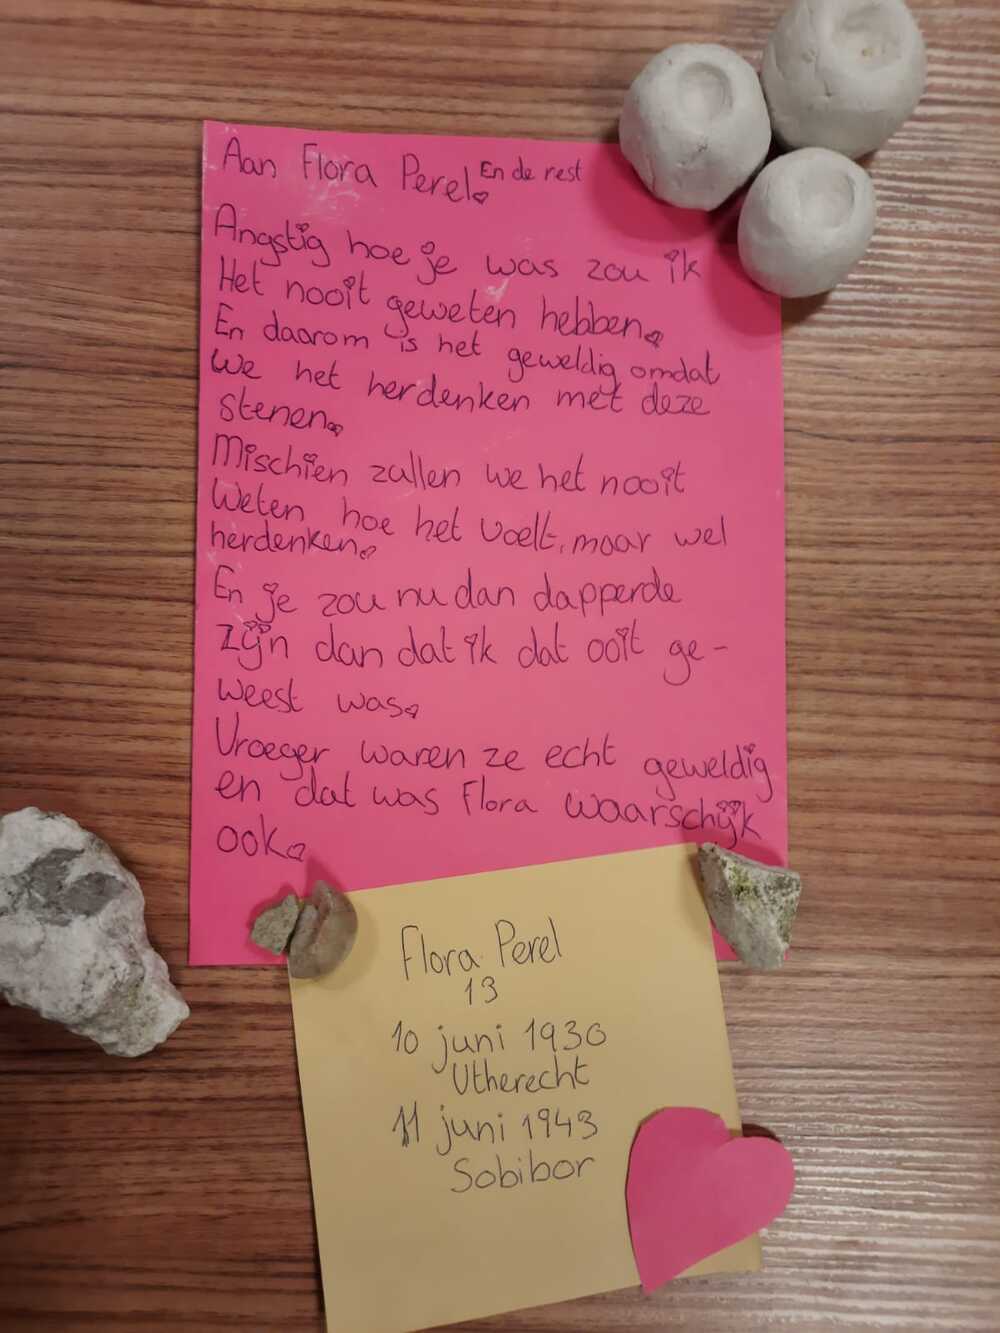 Aan Flora Perel. En de rest
Angstig hoe je was zou ik
Het nooit geweten hebben.
En daarom is het geweldig omdat
We het herdenken met deze
stenen.
Mischien zullen we het nooit
Weten hoe het voelt, maar wel
herdenken.
En je zou nu dan dapperde
zijn dan dat ik dat ooit ge-
weest was.
Vroeger waren ze echt geweldig
en dat was Flora waarschijk
ook.
Flora Perel
13
10 juni 1930
Utherecht
11 juni 1943
Sobibor